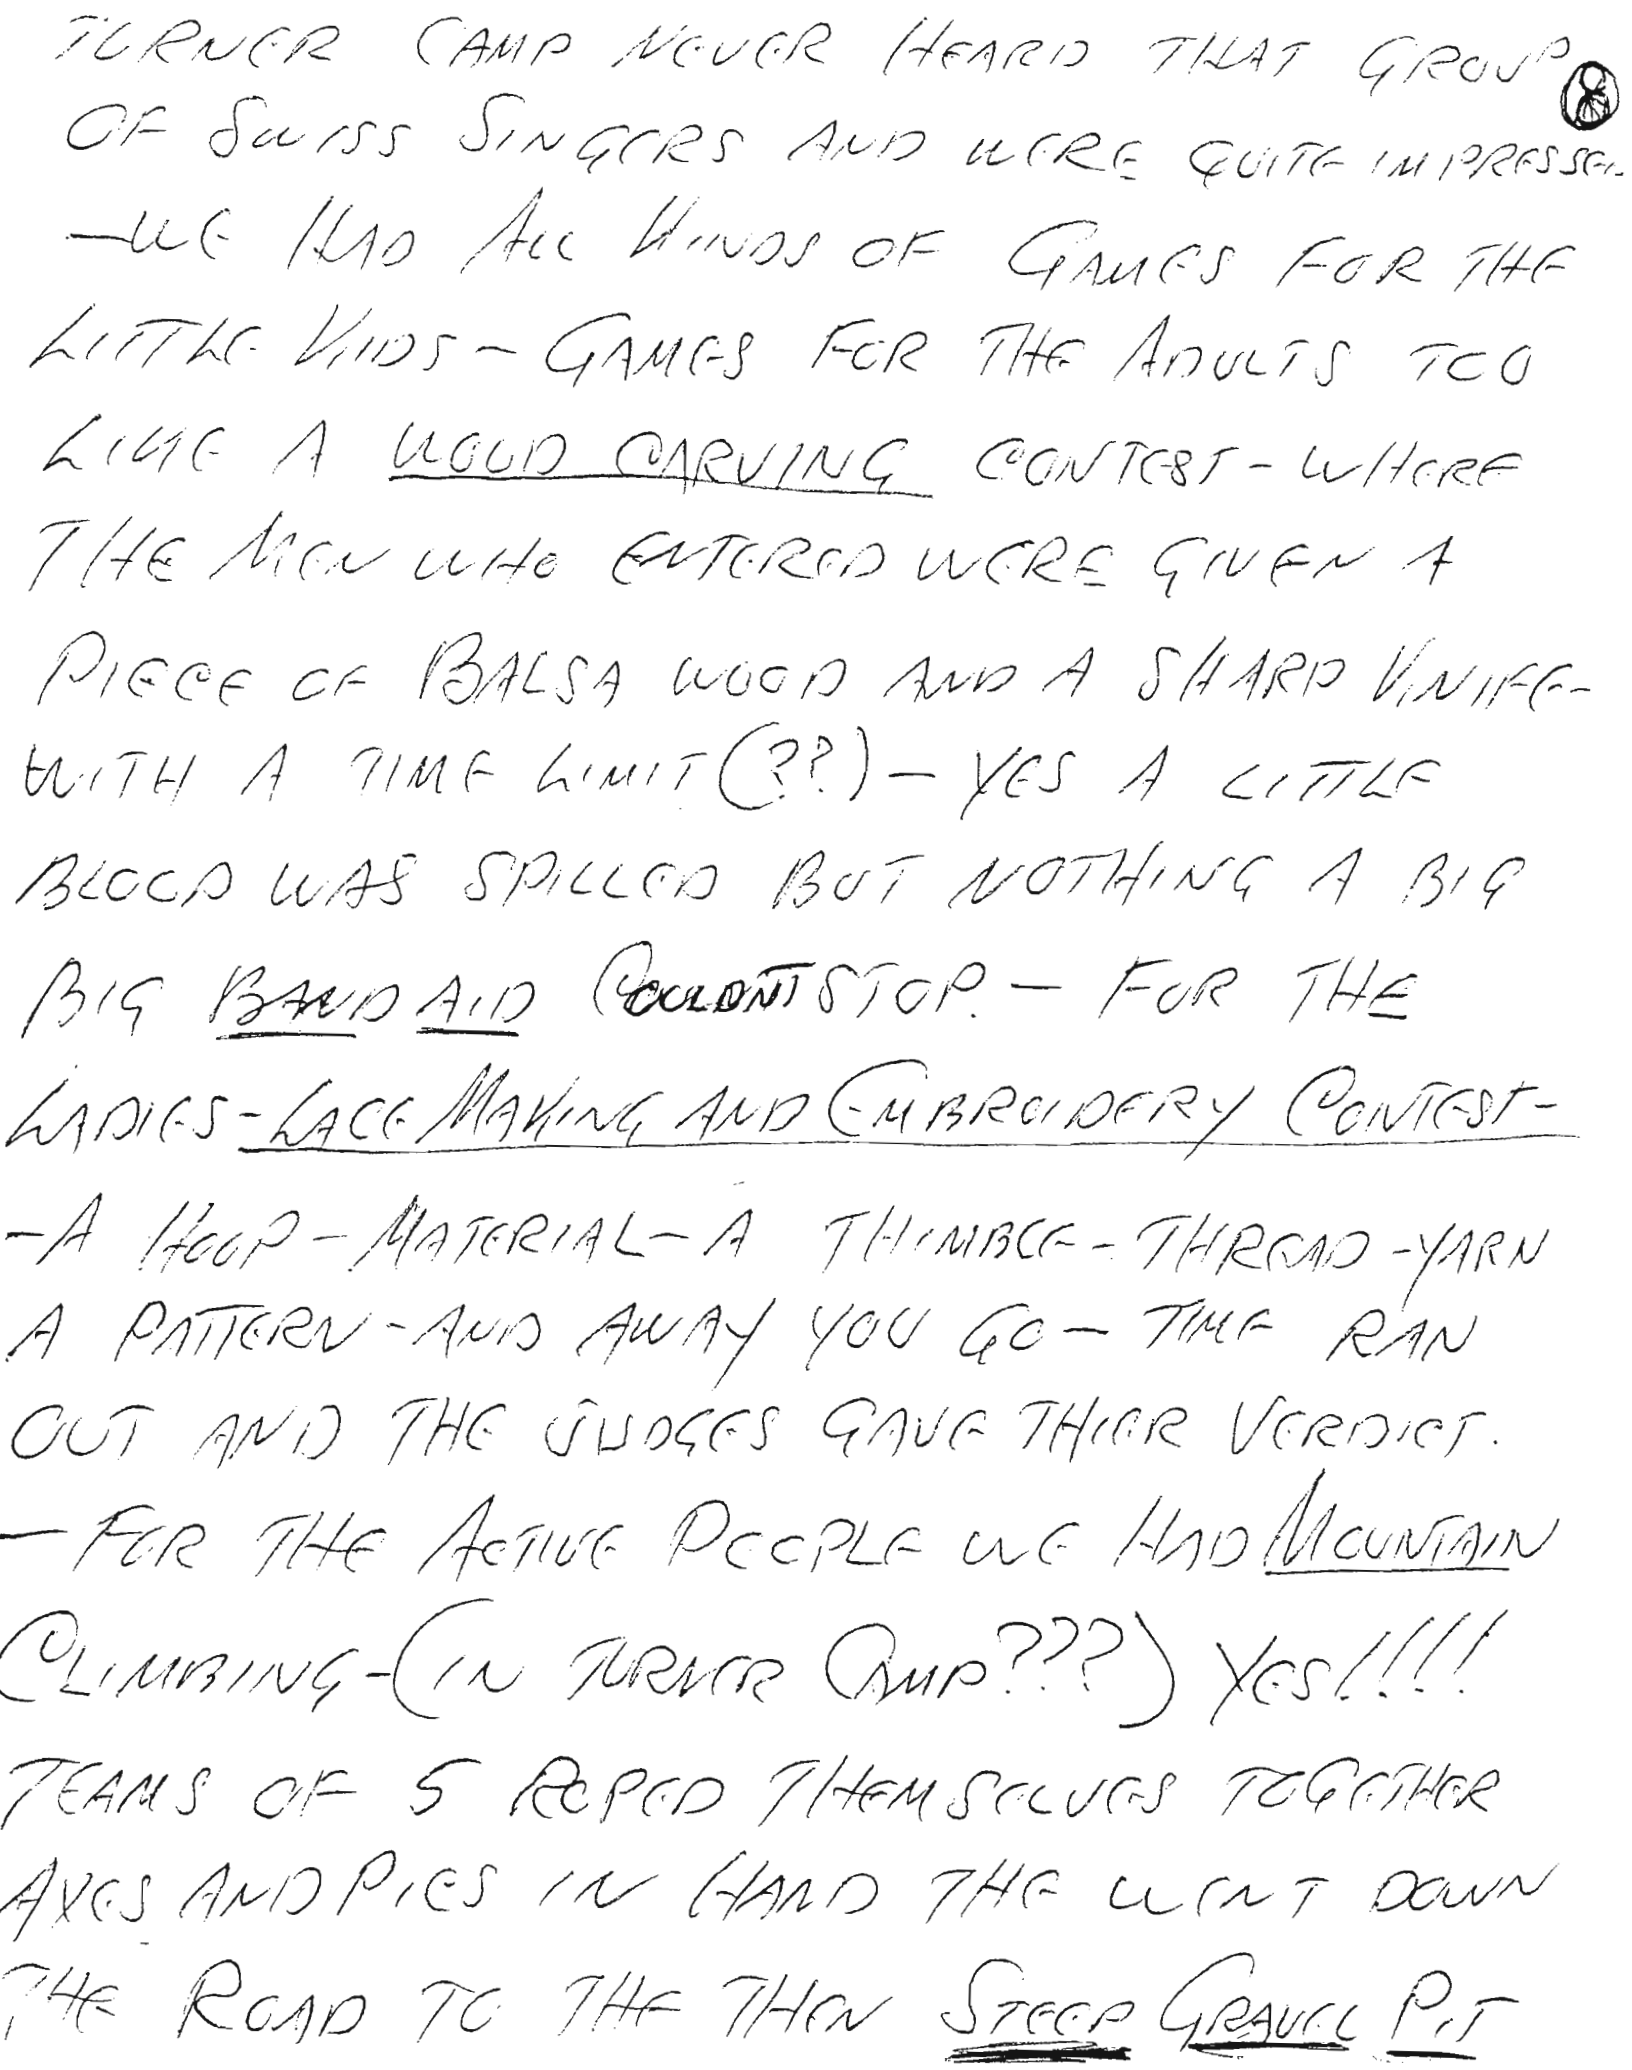 TURNER CAMP NEVER HEARD THAT GROUP
8
OF SWISS SINGERS AND WERE QUITE IMPRESSED
- WE HAD ALL KINDS OF GAMES FOR THE
LITTLE KIDS - GAMES FOR THE ADULTS TOO
LIKE A WOOD CARVING CONTEST - WHERE
THE MEN WHO ENTERED WERE GIVEN A
PIECE OF BALSA WOOD AND A SHARP KNIFE -
WITH A TIME LIMIT (??) - YES A LITTLE
BLOOD WAS SPILLED BUT NOTHING A BIG
BIG BAND AID COULDNT STOP. - FOR THE
LADIES - LACE MAKING AND EMBROIDERY CONTEST -
- A HOOP - MATERIAL - A THIMBLE - THREAD - YARN
A PATTERN - AND AWAY YOU GO - TIME RAN
OUT AND THE JUDGES GAVE THIER VERDICT.
- FOR THE ACTIVE PEOPLE WE HAD MOUNTAIN
CLIMBING - (IN TURNER CAMP???) YES!!!!
TEAMS OF 5 ROPED THEMSELVES TOGETHER
AXES AND PICS IN HAND THE WENT DOWN
THE ROAD TO THE THEN STEEP GRAVEL PIT